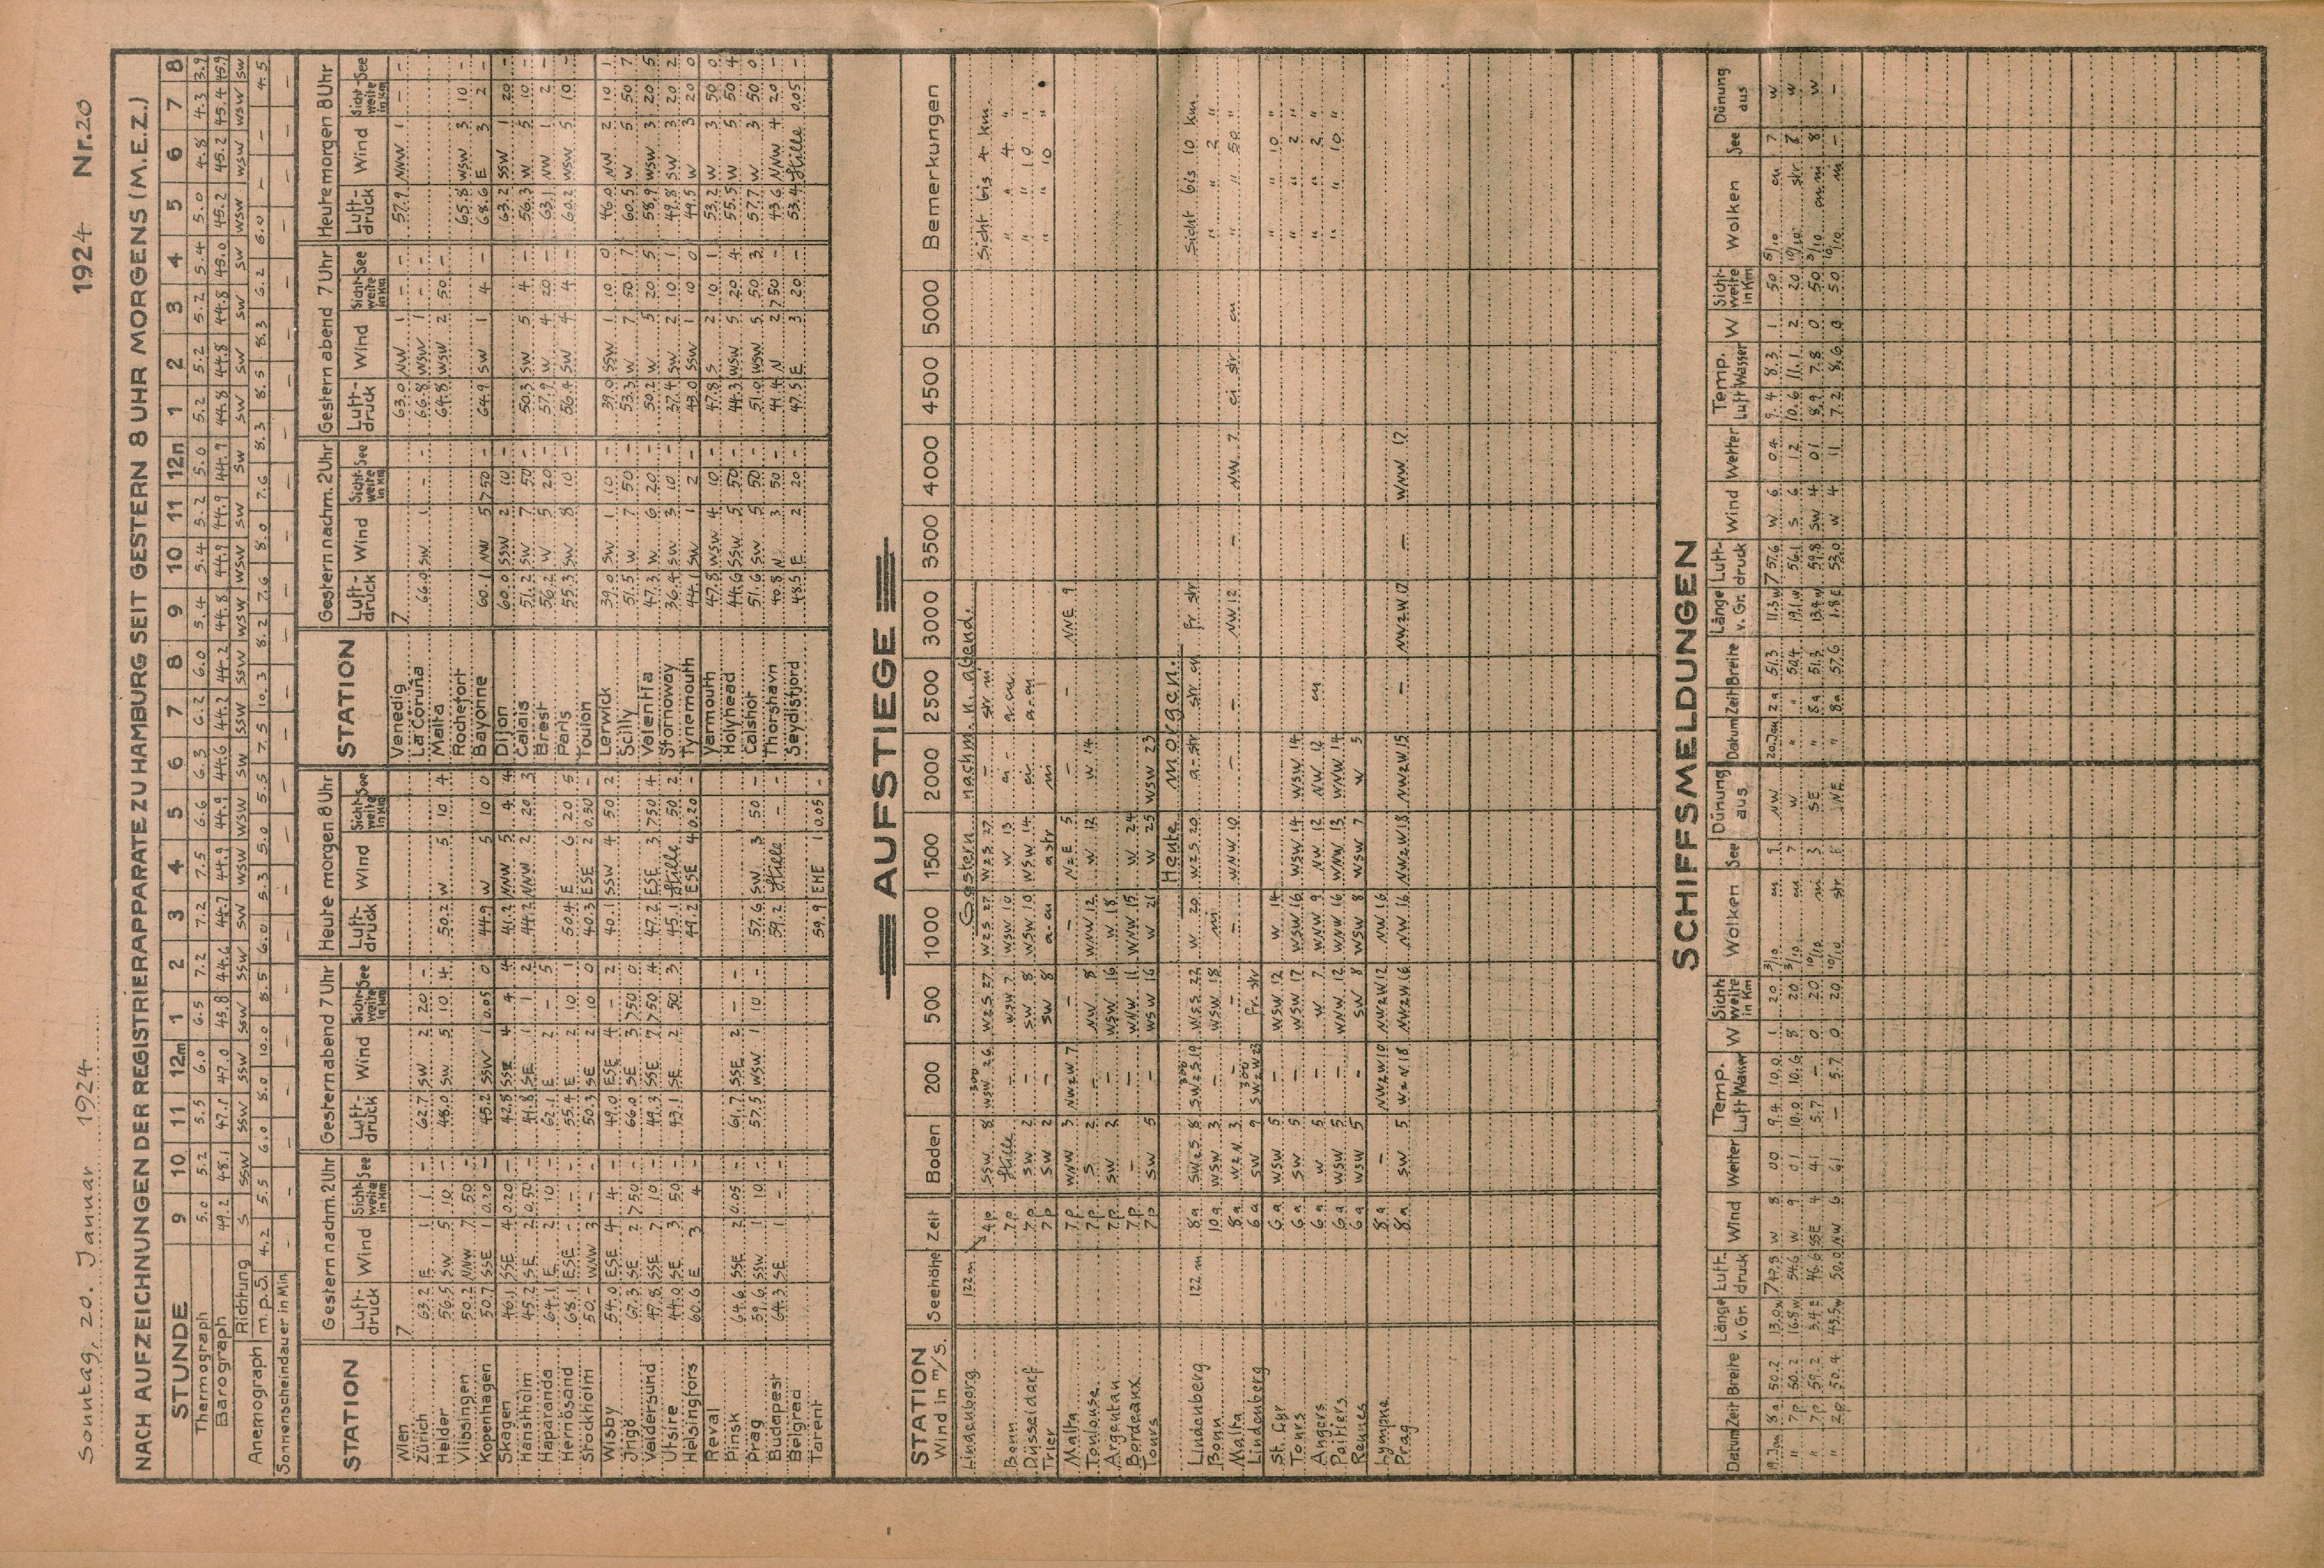 Sonntag, 20. Januar 1924 1924 Nr.20
NACH AUFZEICHNUNGEN DER REGISTRIERAPPARATE ZU HAMBURG SEIT GESTERN 8 UHR MORGENS (M.E.Z.)
STUNDE 9 10 11 12m 1 2 3 4 5 6 7 8 9 10 11 12n 1 2 3 4 5 6 7 8
Thermograph 5.0 5.2 5.5 6.0 6.5 7.2 7.2 7.5 6.6 6.3 6.2 6.0 5.4 5.4 5.2 5.0 5.2 5.2 5.2 5.4 5.0 4.8 4.3 3.9
Barograph 49.2 48.1 47.1 47.0 45.8 44.6 44.7 44.9 44.9 44.6 44.2 44.2 44.8 44.9 44.9 44.9 44.8 44.8 44.8 45.0 45.2 45.2 45.4 45.9
Anemograph Richtung S SSW SSW SSW SSW SSW SW WSW WSW SW SSW SSW WSW WSW SW SW SW SW SW SW WSW WSW WSW SW
m. p. S. 4.2 5.5 6.0 8.0 10.0 8.5 6.0 5.3 5.0 5.5 7.5 10.3 8.2 7.6 8.0 7.6 8.3 8.5 8.3 6.2 6.0 - - 4.5
Sonnenscheindauer in Min. - - - - - - - - - - - - - - - - - - - - - - - -
STATION Gestern nachm. 2 Uhr Gestern abend 7 Uhr Heute morgen 8 Uhr STATION Gestern nachm. 2 Uhr Gestern abend 7 Uhr Heute morgen 8 Uhr
Luftdruck Wind Sichtweite in Km See Luftdruck Wind Sichtweite in Km See Luftdruck Wind Sichtweite in Km See Luftdruck Wind Sichtweite in Km See Luftdruck Wind Sichtweite in Km See Luftdruck Wind Sichtweite in Km See
Wien 7 Venedig 7 63.0 NW 1 - - 57.9 NNW 1 - -
Zürich 63.2 E 1 1 - 62.7 SW 2 20 - La Coruna 66.0 SW 1 - - 66.8 WSW 1 - -
Helder 56.5 SW 5 10 - 48.0 SW 5 10 4 50.2 W 5 10 4 Malta 64.8 WSW 2 50 -
Vlissingen 50.2 NNW 7 50 - Rochefort 65.8 WSW 3 10 -
Kopenhagen 50.7 SSE 1 0.20 - 45.2 SSW 1 0.05 0 44.9 W 5 10 0 Bayonne 60.1 NW 5 750 - 64.9 SW 1 4 - 68.6 E 3 2 -
Skagen 46.1 SSE 4 0.20 - 42.8 SSE 4 4 4 41.2 NNW 5 4 4 Dijon 60.0 SSW 2 10 - 63.2 SSW 1 20 -
Hanstholm 45.2 SE 2 0.50 - 41.8 SE 1 1 2 44.2 NNW 2 20 3 Calais 51.2 SW 7 50 - 50.3 SW 5 4 - 56.3 W 5 10 -
Haparanda 64.1 E 2 10 - 62.1 E 2 - 5 Brest 56.2 W 5 20 - 57.9 W 4 20 - 63.1 NW 1 2 -
Hernösand 68.1 ESE - - - 55.4 E 2 10 1 50.4 E 6 20 5 Paris 55.3 SW 8 10 - 56.4 SW 4 4 - 60.2 WSW 5 10 -
Stockholm 50.- WNW 3 - - 50.3 SE 2 10 0 40.3 ESE 2 0.50 - Toulon
Wisby 54.0 ESE 4 4 - 49.0 ESE 4 - 2 40.1 SSW 4 50 2 Lerwick 39.0 SW 1 10 - 39.0 SSW 1 10 0 46.0 NW 2 10 1
Jngö 67.3 SE 2 750 - 66.0 SE 3 >50 0 Scilly 51.5 W 7 50 - 53.3 W 7 50 7 60.5 W 5 50 7
47.8 SSE 7 10 - 49.3 SSE 7 >50 4 47.2 ESE 3 750 4 Valentia 47.3 W 6 20 - 50.2 W 5 20 5 58.9 WSW 3 20 5
Utsire 44.0 SE 3 50 - 43.1 SE 2 50 3 45.1 Stille 50 2 Stornoway 36.4 SW 3 10 - 37.4 SW 2 10 1 49.8 SW 3 20 2
Helsingfors 60.6 E 3 4 49.2 ESE 4 0.20 - Tynemouth 44.1 SW 1 2 - 43.0 SSW 1 10 0 49.5 W 3 20 0
Reval Yarmouth 47.8 WSW 4 10 - 47.8 S 2 10 1 53.2 W 3 50 0
Pinsk 64.6 SSE 2 0.05 - 61.7 SSE 2 - - Holyhead 44.6 SSW 5 50 - 44.3 WSW 5 20 4 55.5 W 5 50 4
Prag 59.6 SSW 1 10 - 57.5 WSW 1 10 - 57.6 SW 3 50 - Calshot 51.6 SW 5 50 - 51.0 WSW 5 50 3 57.7 W 3 50 0
Budapest 64.3 SE 1 - - 59.2 Stille - - Thorshavn 40.8 N 3 50 - 41.4 N 2 750 - 43.6 NNW 4 20 -
Belgrad Seydisfjord 48.5 E 2 20 - 47.5 E 3 20 - 53.4 Stille 0.05 -
Tarent 59.9 ENE 1 0.05 -
AUFSTIEGE
STATION Wind in m/s. Seehöhe Zeit Boden 200 500 1000 1500 2000 2500 3000 3500 4000 4500 5000 Bemerkungen
Gestern nachm. u. abend.
Lindenberg 122 m 4p SSW 8 300 WSW 26 WzS 27 WzS 27 WzS 27 - str. Sicht bis 4 km.
Bonn 7p Stille - WSW 7 WSW 10 W 13 " " 4 "
Düsseldorf 7p SW 2 - SW 8 WSW 10 WSW 14 " " 10 "
Trier 7p SW 2 - SW 8 " 10 "
Malta 7p WNW 3 NWzW 7 - WNW 12 NzE 5 - - NNE 9
Toulouse 7p S 2 - NW 8 WNW 12 W 12 W 14
Argentan 7p SW 2 - WSW 16 W 18
Bordeaux 7p - - WNW 11 WNW 15 W 24
Tours 7p SW 5 - WSW 16 W 21 W 25 WSW 23
Heute morgen.
Lindenberg 122 m 8a SWzS 8 300 SWzS 19 WzS 22 W 20 WzS 20 a-str fr str Sicht bis 10 km.
Bonn 10a WSW 3 - WSW 18 " " 2 "
Malta 8a WzN 3 - - - WNW 10 - - NW 12 - NW 7 ci str " " 50 "
Lindenberg 6a SW 9 300 SWzW 23 fr. str
St. Cyr 6a WSW 5 - WSW 12 W 14 " " 10 "
Tours 6a SW 5 - WSW 17 WSW 16 WSW 14 WSW 14 " " 2 "
Angers 6a W 5 - W 7 WNW 9 NW 12 NW 12 " " 2 "
Poitiers 6a WSW 5 - WNW 12 WNW 16 WNW 13 WNW 14 " " 10 "
Rennes 6a WSW 5 - SW 8 WSW 8 WSW 7 W 5
Lympne 8a - NWzW 10 NWzW 12 NW 16
Prag 8a SW 5 WzN 18 NWzW 16 NW 16 NWzW 18 NWzW 15 - NWzW 17 - WNW 17
SCHIFFSMELDUNGEN
Datum Zeit Breite Länge v. Gr. Luftdruck Wind Wetter Temp. Luft Wasser W Sichtweite in Km Wolken See Dünung aus Datum Zeit Breite Länge v. Gr. Luftdruck Wind Wetter Temp. Luft Wasser W Sichtweite in Km Wolken See Dünung aus
19. Jan 8a 50.2 13.0w 749.3 W 8 00 9.4 10.0 1 20 3/10 cu 9 NW 20. Jan 2a 51.3 11.3w 757.6 W 6 04 9.4 8.3 1 50 5/10 cu 7 W
" 7p 50.2 16.8w 54.6 W 9 01 10.0 10.6 8 20 3/10 cu 7 W " " 50.4 19.1w 56.1 S 6 12 10.6 11.1 2 20 10/10 str 7 W
" 7p 59.2 3.4E 46.6 SSE 4 41 5.7 - 0 20 10/10 3 SE " 8a 51.3 13.4w 59.8 SW 4 01 8.9 7.8 0 50 3/10 8 W
" 2p 50.4 45.5w 50.0 NW 6 61 - 5.7 0 20 10/10 str NE " 8a 57.6 1.8E 53.0 W 4 11 7.2 8.6 0 50 10/10 - -